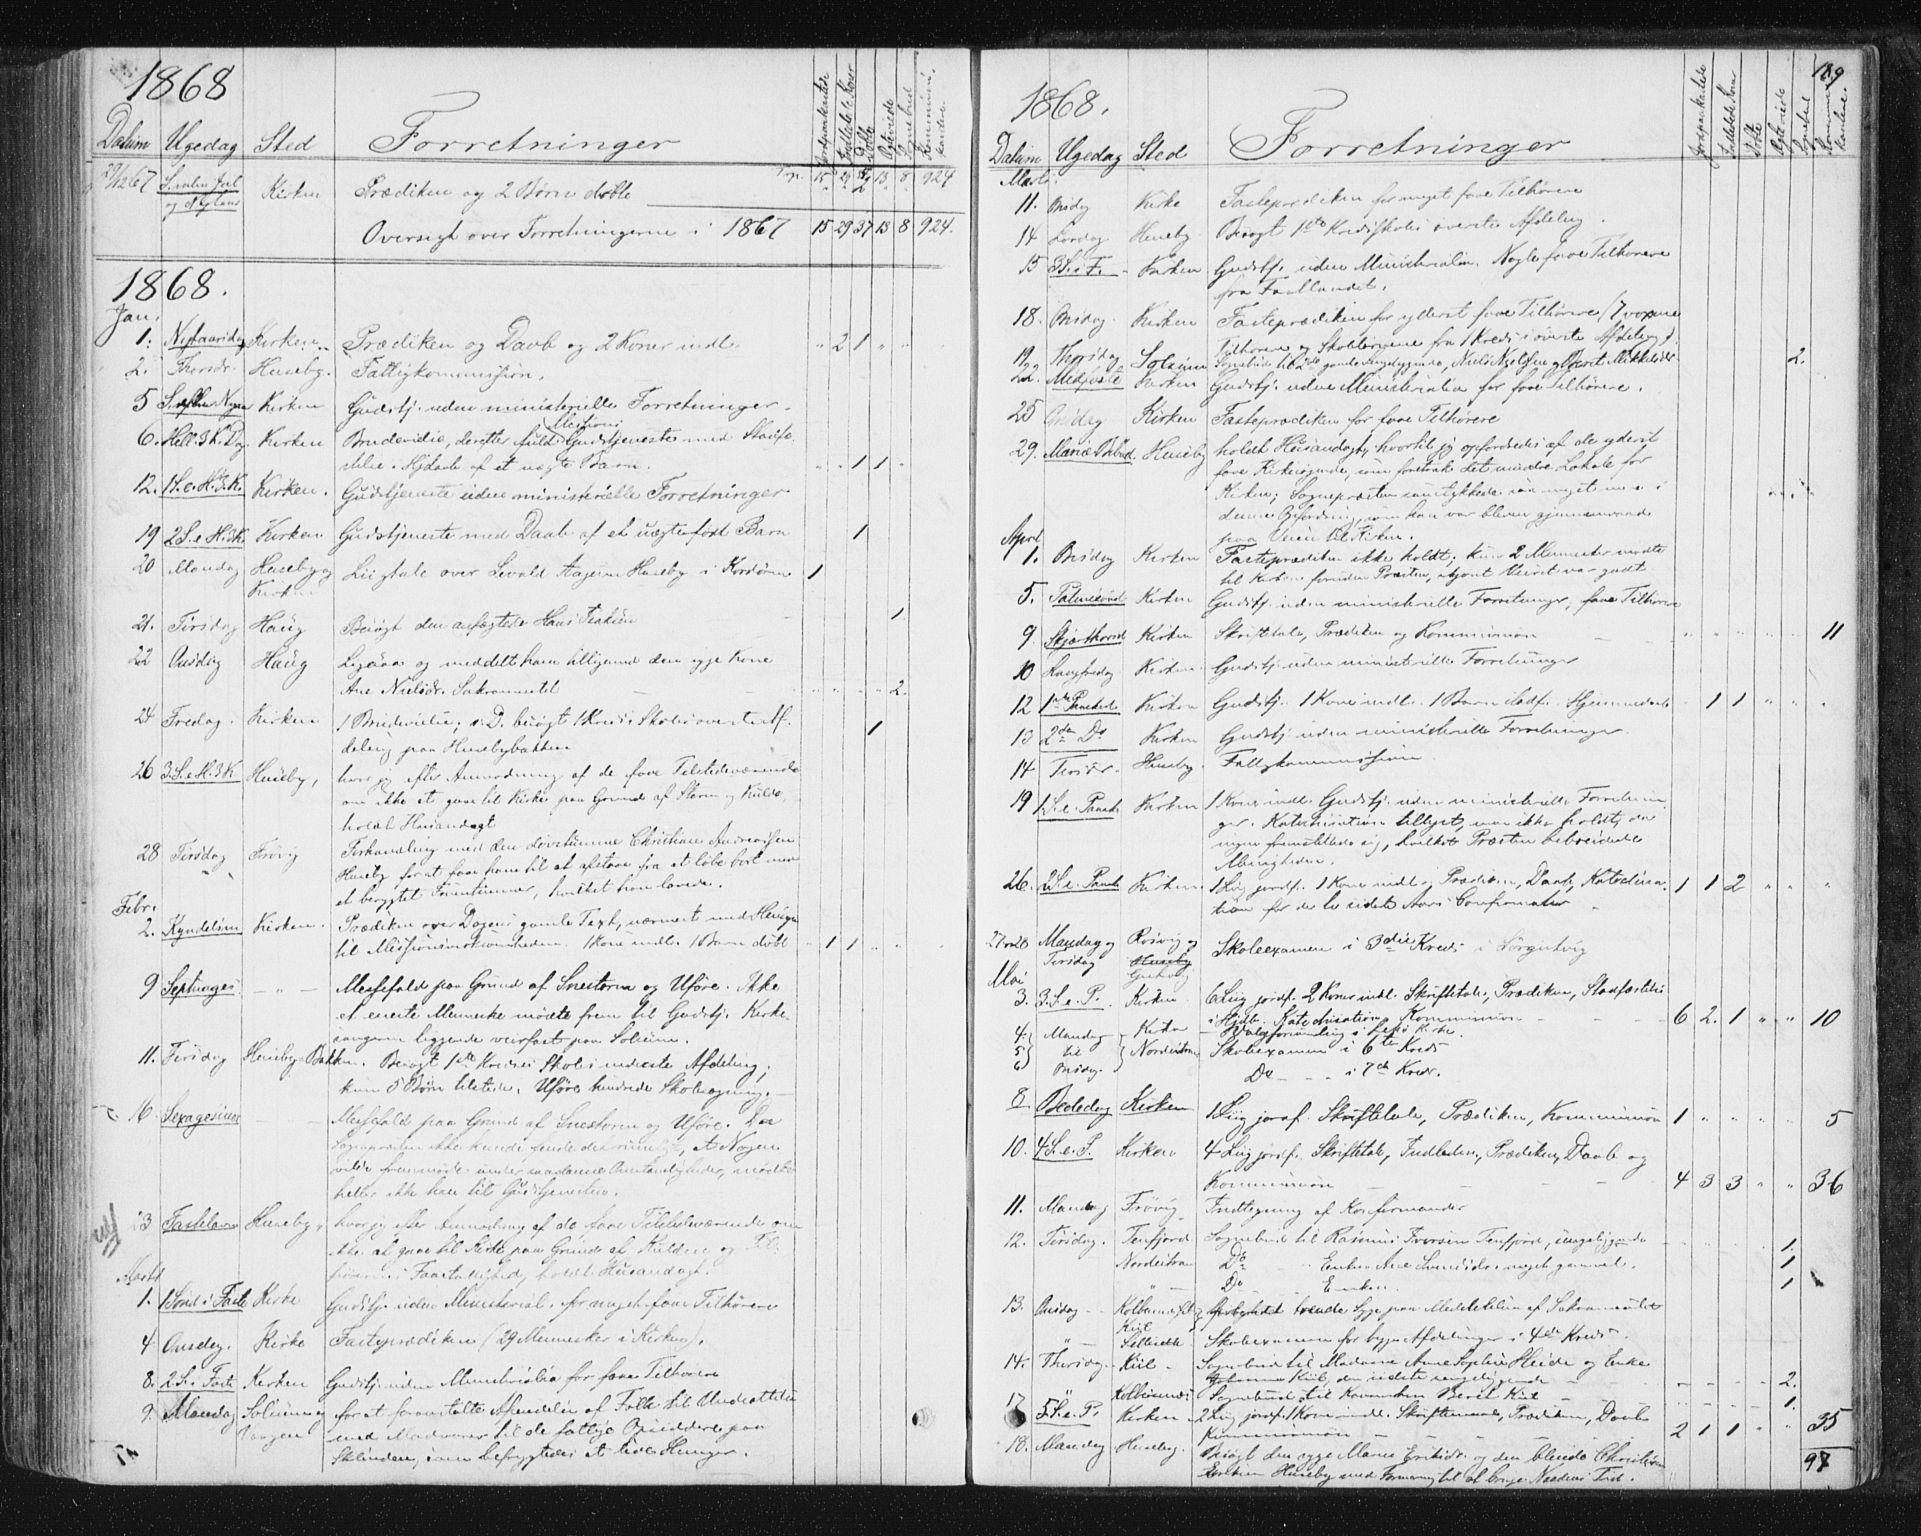 1868
Datum Ugedag Sted Forretninger Jordpaakastede Indledede Koner Døbte Copulerede Sognebud Kommunikantere.
29/12 67 S. mlm Juul og Nytaar Kirken Prædiken og 2 Børn døbte 15 29 37 13 8 924
Oversigt over Forretningerne i 1867 15 29 37 13 8 924.
1868.
Jan.
1. Nytaarsdag Kirken Prædiken og Daab og 2 Koner indl. " 2 1 " "
2. Thorsd. Huseby. Fattigkommission.
5 S. efter Nyaar Kirken Gudstj. uden ministerielle Forretninger.
6. Hell. 3 K. Dag Kirken Brudevielse, derefter fuld Missions Gudstjeneste med Stadfæ-
stelse. Hjdaab af et uægte Barn. " " 1 1 "
12. 1 S. e. H. 3 K. Kirken. Gudstjeneste uden ministerielle Forretninger
19 2 S. e. H. 3 K. Kirken Gudstjeneste med Daab af et uægte født Barn 1
20 Mandag Huseby og Kirken Liigtale over Sevald Aagesen Huseby i Kordøren 1
21. Tirsdag Haug Besøgt den anfægtede Hans 1
22 Onsdag Haug Ligesaa og meddelt ham tilligemed den syge Kone
Ane Nielsdr. Sakramentet 2.
24 Fredag. Kirken 1 Brudevielse; s. D. besøgt 1 Kreds Skoles øverste Af- 1
deling paa Husebybakken
26 3 S. e. H. 3 K. Huseby, hvor jeg efter Anmodning af de faae Tilstedeværende
om ikke at gaae til Kirke paa Grund af Storm og Kulde,
holdt Husandagt
28 Tirsdag Frøvig Forhandling med den døvstumme Christian Andreassen
Huseby for at faae ham til at afstaae fra at løbe bort med
et berygtet Fruentimmer, hvilket han lovede.
Febr.
2. Kyndelsm. Kirken. Prædiken over Dagens gamle Text, nærmest med Hensyn
til Missionsvirksomheden. 1 Kone indl. 1 Barn døbt " 1 1 " "
9 Septuages. " Messefald paa Grund af Snestorm og Uføre. Ikke
et eneste Menneske mødte frem til Gudstj. Kirke-
sangeren liggende veirfast paa Solsem.
11. Tirsdag Huseby-Bakken. Besøgt 1ste Kredses Skoles nederste Afdeling;
kun 5 Børn tilstede. Uføre hindrede Skolesøgning.
16. Sexagesima Messefald paa Grund af Snestorm og Uføre. Da
Sognepræsten ikke kunde finde det rimeligt, at Nogen
vilde fremmøde under saadanne Omstændigheder, mødte
heller ikke han til Gudstjenesten.
23 Fastelavn Huseby, hvor jeg efter Anmodning af de faae Tilstedeværende om
ikke at gaae til Kirke paa Grund af Kulden og Til-
hørernes Faatallighed, holdt Husandagt.
Marts
1. 1 Sønd. i Faste Kirke Gudstj. uden Ministerial. for meget faae Tilhørere
4 Onsdag. Kirke Fasteprædiken (29 Mennesker i Kirken).
8. 2 S. i Faste Kirken Gudstj. uden Ministerialia for faae Tilhørere
9. Mandag Solsem og Vaagen for at foranstalte Afsendelse af Folk til Undsættelse
med Madvarer til de fattige Opsiddere paa
Sklinden, som befrygtedes at lide Hunger.
1868. 119
Datum Ugedag Sted Forretninger Jordpaakastede Indledede Koner Døbte Copulerede Sognebud Kommunikantere.
Marts.
11. Onsdag Kirke Fasteprædiken for meget faae Tilhørere
14 Lørdag Huseby Besøgt 1ste Kredsskoles øverste Afdeling.
15 3 S. i F. Kirken Gudstj. uden Ministerialia. Nogle faae Tilhørere
fra Fastlandet.
18. Onsdag. Kirken Fasteprædiken for yderst faae Tilhørere (7 voxne
Tilhørere og Skolebørnene fra 1 Kreds's øverste Afdeling).
19 Thorsdag Solsem Sognebud til 2de gamle Nils Nielsen og Beret Mikkelsdr. 2.
22. Midfaste Kirken Gudstj. uden Ministerialia for faae Tilhørere.
25 Onsdag Kirken Fasteprædiken for faae Tilhørere
29. Mariæ Bebud. Huseby holdt Husandagt, hvortil jeg opfordredes af de yderst
faae Kirkesøgende, som foretrak det mindre Lokale for
Kirken; Sognepræsten samtykkede saa meget mere i
denne Opfordring, som han var bleven gjennemvaad
paa Veien til Kirken.
April
1. Onsdag Kirken Fasteprædiken ikke holdt; kun 2 Mennesker mødte
til Kirken foruden Præsten, skjønt Veiret var godt.
5. Palmesønd. Kirken Gudstj. uden ministerielle Forretninger, faae Tilhørere
9 Skjærthorsd. Kirken Skriftetale, Prædiken og Kommunion " " " " 11
10 Langfredag Kirken. Gudstj. uden ministerielle Forretninger
12 1ste Paaskd. Kirken Gudstj. 1 Kone indl. 1 Barn stadf. Hjemmedaab 1 1 " " "
13 2den Do Kirken Gudstj. uden ministerielle Forretninger.
14 Tirsdr. Huseby. Fattigkommission
19 1 S. e. Paask. Kirken 1 Kone indl. Gudstj. uden ministerielle Forretnin-
ger. Katechisation tillyst, men ikke holdt, da
ingen fremstillede sig, hvilket Præsten bebreidede
Menigheden.
26. 2 S. e. Paask. Kirken. 1 Liig jordf. 1 Kone indl. og Prædiken, Daab, Katechisa- 1 1 2 " " "
tion for de to sidste Aars Confirmater
27 og 28 Mandag og Tirsdag Rosvig og Huseby Gutvig Skoleexamen i 3die Kreds i Sørgutvig
Mai
3. 3. S. e. P. Kirken 6 Liig jordf. 2 Koner indl. Skriftetale, Prædiken, Stadfæstelse
i Hjdb. Katechisation, Kommunion 6 2. 1 " " 10
4. Mandag Kirken Valgforsamling i Lekø Kirke.
5 til Nordestraum Skoleexamen i 6te Kreds
6 Onsdag. Do i 7de Kreds.
8. Bededag Kirken 1 Liig jordf. Skriftetale, Prædiken, Kommunion 1 " " " " 5
10. 4 S. e. P. Kirken 4 Liig jordf. Skriftetale, Indleden, Prædiken, Daab og
Kommunion 4 3 3 " " 36
11. Mandag Frøvig Indtegning af Konfirmander
12. Tirsdag. Tenfjord Sognebud til Rasmus Iversen Tenfjord, sengeliggende 1
Nordestraum Do Enken Ane Svendsdr. meget gammel. 1
" Do Enken 1
13. Onsdag Kolbeinset og Kiil trende Syge paa Meddelelsen af Sakramentet
" Skoleexamen for begge Afdelinger i 4de Kreds.
14. Thorsdag. Kiil Sognebud til Madame Anne Sophie Heide og Enke
Johanna Kiil, den sidste sengeliggende 2.
" Sognebud til Beret Kiil 1.
17 5 S. e. P. Kirken 2 Liig jordf. 1 Kone indl. Skriftemaal, Prædiken, Daab
Kommunion 2 1 1 " " 35
18. Mandag Huseby. Besøgt den syge Maren Eriksdr. og den blinde Christian
Huseby med Formaning til at bruge Naadens Tid.
97